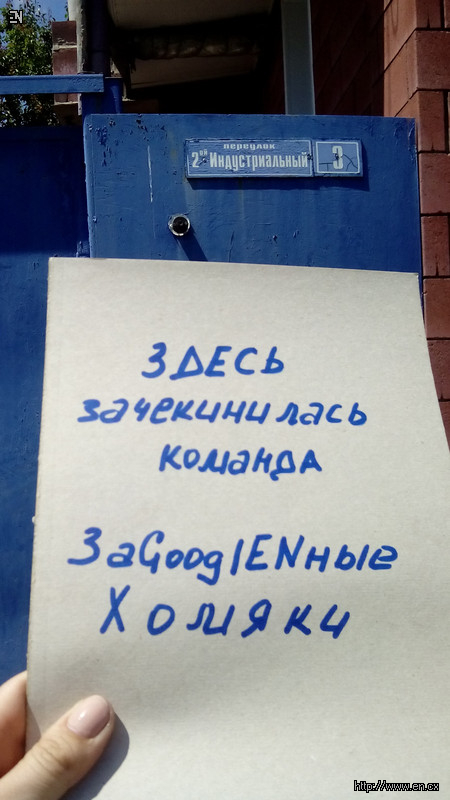 EN
переулок
2ой Индустриальный 3
ЗДЕСЬ
зачекинилась
команда
ЗаGooglENные
Хомяки
http://www.en.cx